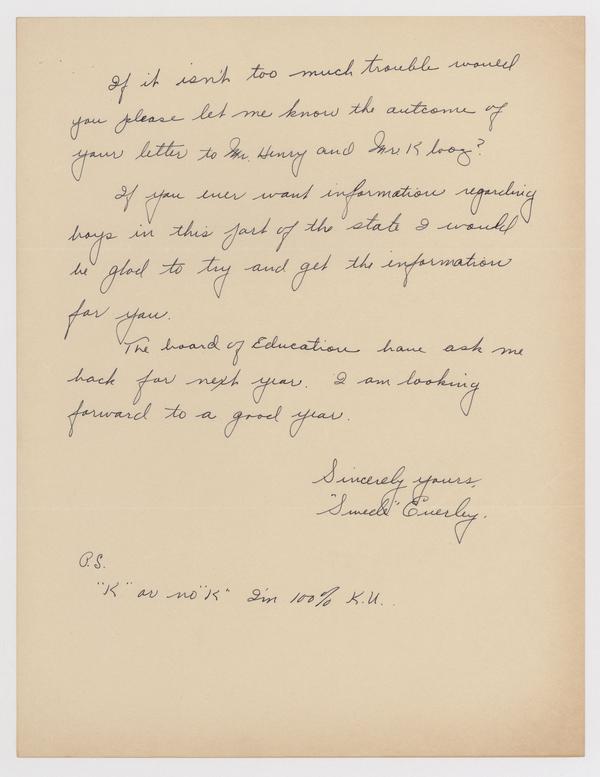 If it isn't too much trouble would
you please let me know the outcome of
your letter to Mr. Henry and Mr. Klooz?
If you ever want information regarding
boys in this part of the state I would
be glad to try and get the information
for you.
The board of Education have ask me
back for next year. I am looking
forward to a good year.
Sincerely yours,
"Swede" Everley.
P.S.
"K" or no "K" I'm 100% K.U.